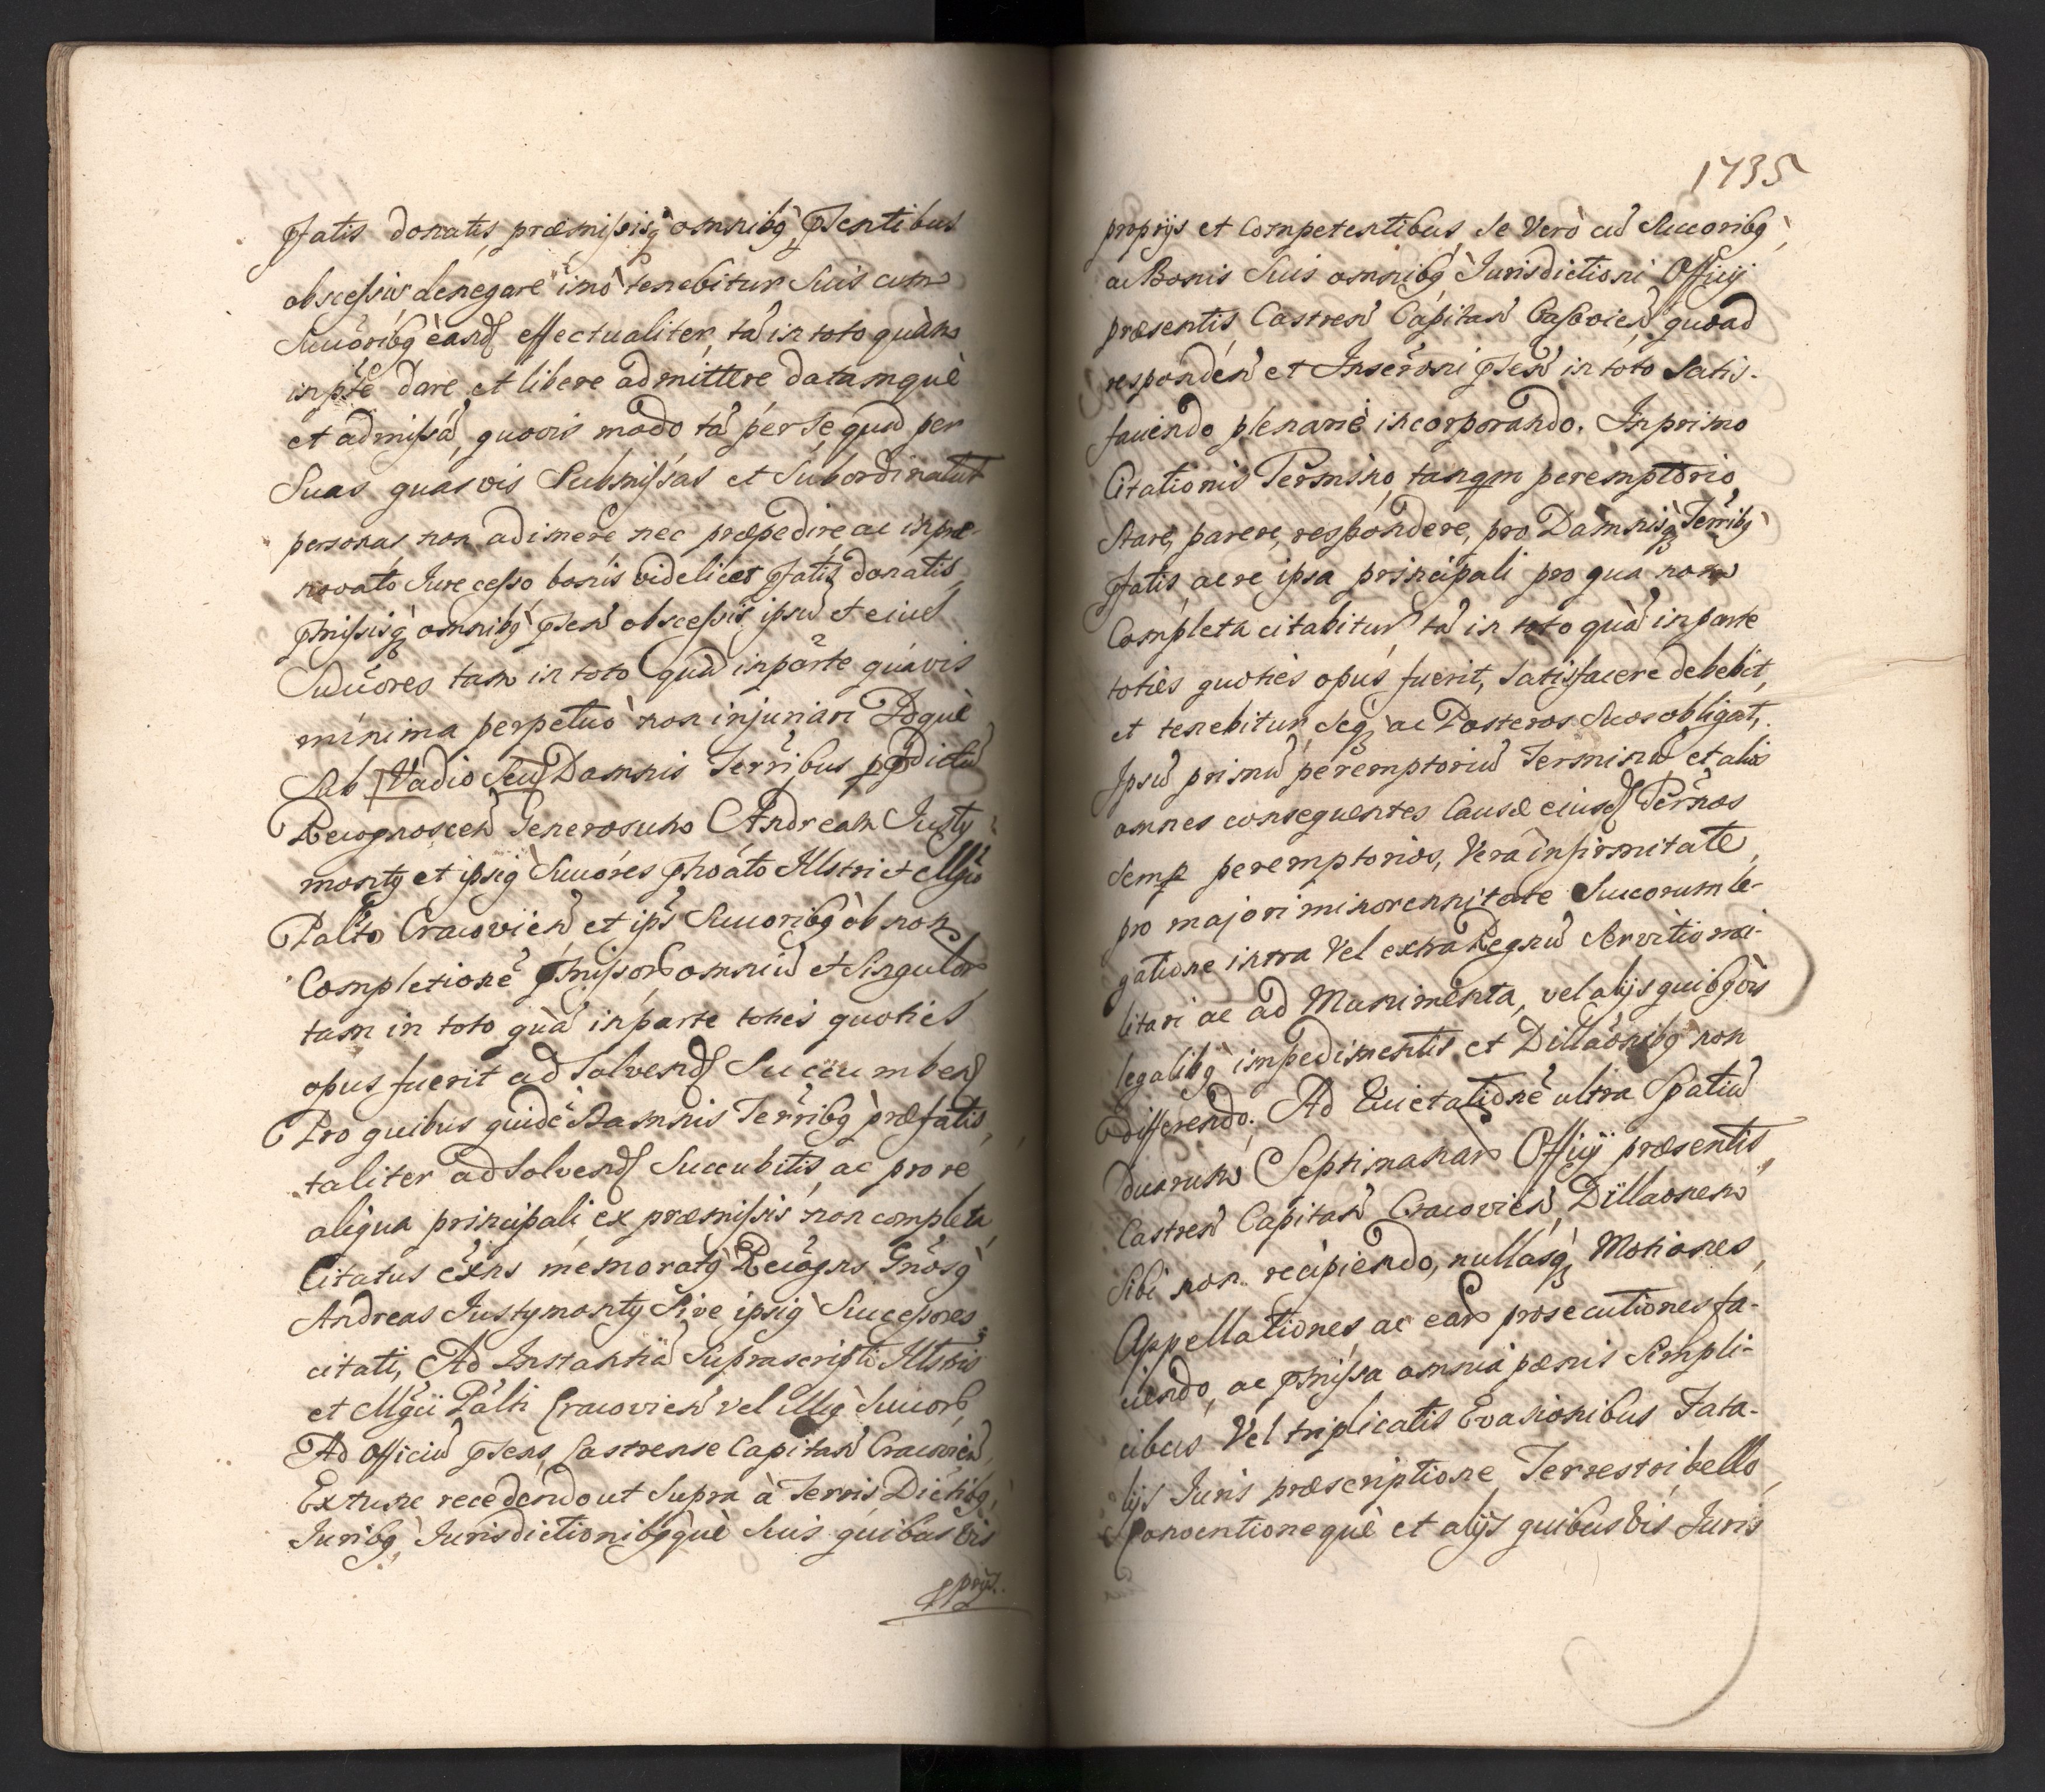 pfatis donatis, præmissisq̃ omnibq̀ psentibus
obscessis denegare imò tenebitur Suis cum
Succoribq̀ eand effectualiter, tã in toto quàm
in pte dare et libere admittere datamquè
et admissã, quovis modo tã per Se quã per
Suas quasvis Submissas et Subordinatas
personas non adimere nec præpedire ac in præ-
novato Iure cesso bonis videlicet pfatis donatis,
pmissisq̃ omnibq̀ psen obscessis ipsũ et eius
Succores tam in toto quã in parte quavis
minima perpetuò non injuriari Idquè
Sub Vadio Seu Damnis Terribus p pdictũ
Recognoscen Generosum Andream Justy
monty et ipsiq̀ Succores pnoato Illstri et Mgco
Palto Cracovien et ips Succoribq̀ ob non
Completione pmissor omniũ et Singulor
tam in toto quã in parte toties quoties
opus fuerit ad Solvend Succumbend
Pro quibus quide Damnis Terribq̀ præfatis,
taliter ad Solvend Succubitis, ac pro re
aliqua principali ex præmissis non completa,
Citatus exns memoratq̀ Recogns Gnosq̀
Andreas Justymonty Sive ipsiq̀ Successores
citati, Ad Instantiã Suprascripti Illstris
et Mgci Palti Cracovien vel illiq̀ Succor,
Ad Officiũ psens Castrense Capitan Cracovien,
Ex tunc recedendo ut Supra à Terris Dictibq̀,
Juribq̀, Jurisdictionibq̀què Suis quibusvis
pprijs.
1735
proprijs et Competentibus, Se Verò cũ Succoribq̀,
ac Bonis Suis omnibq̀ Jurisdictioni Officij
præsentis, Castren Capitan Cracovien, quoad
responden et Inseroni psen in toto Satis-
faciendo plenariè incorporando. In primo
Citationis Termino, tanqm peremptorio,
Stare, parere, respondere, pro Damnisq̃ Terribq̀
pfatis, ac re ipsa principali pro qua non
Completa citabitur tã in toto quã in parte
toties quoties opus fuerit, Satisfacere debebit,
et tenebitur Seq̃ ac Posteros Suos obligat,
Ipsũ primũ peremptoriũ Terminũ et alios
omnes consequentes Causæ eiusd Ternos
Semp peremptorios, Vera infirmitate,
pro majori minorennitate Succorum le-
gatione intra Vel extra Regnũ Servitio mi-
litari ac ad Munimenta, vel alijs quibqvis
legalibq̀ impedimentis et Dillaonibq̀ non
Differendo. Ad Euictatione ultra Spatiũ
duarum Septimanar Officij præsentis,
Castren Capitan Cracovien, Dillaonem
Sibi non recipiendo, nullasq̃ Motiones,
Appellationes, ac ear prosecutiones fa-
ciendo, ac pmissa omnia pænis Simpli-
cibus Vel triplicatis Evasionibus Fata-
lijs Juris præscriptione, Terrestri bello,
Conventionequè et alijs quibusvis Juris